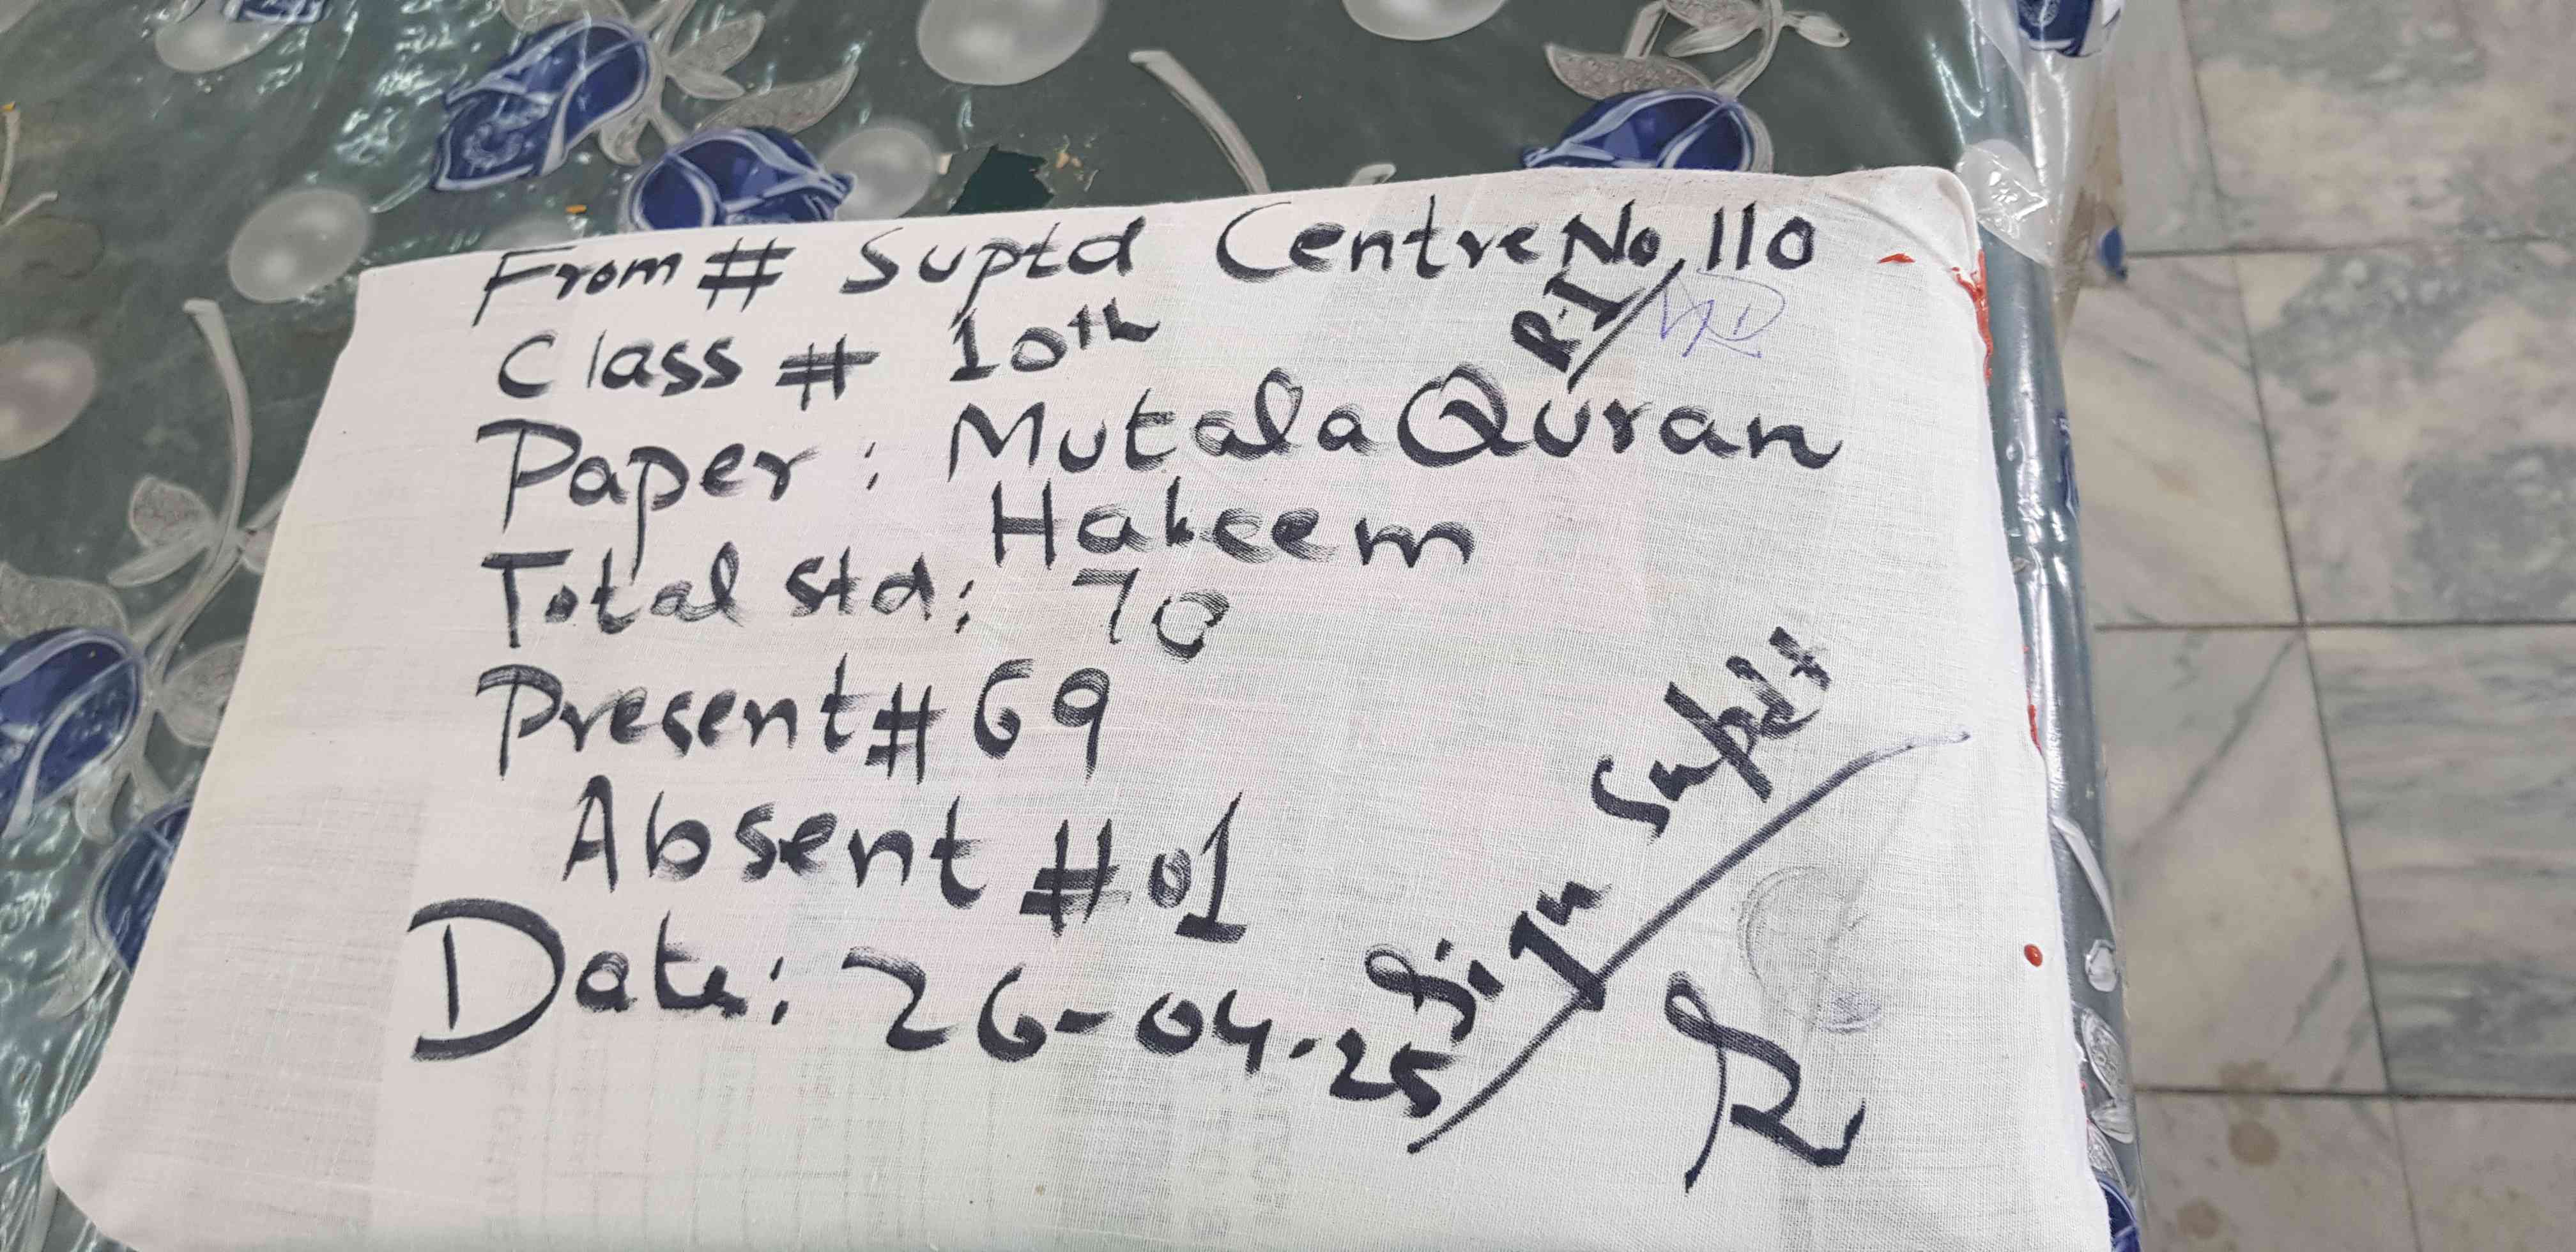 From # Suptd Centre No. 110
R.I
Class # 10th
Paper : Mutala Quran
Hakeem
Total std : 70
Present # 69
Absent # 01
Date : 26-04-25
Sign Supdt